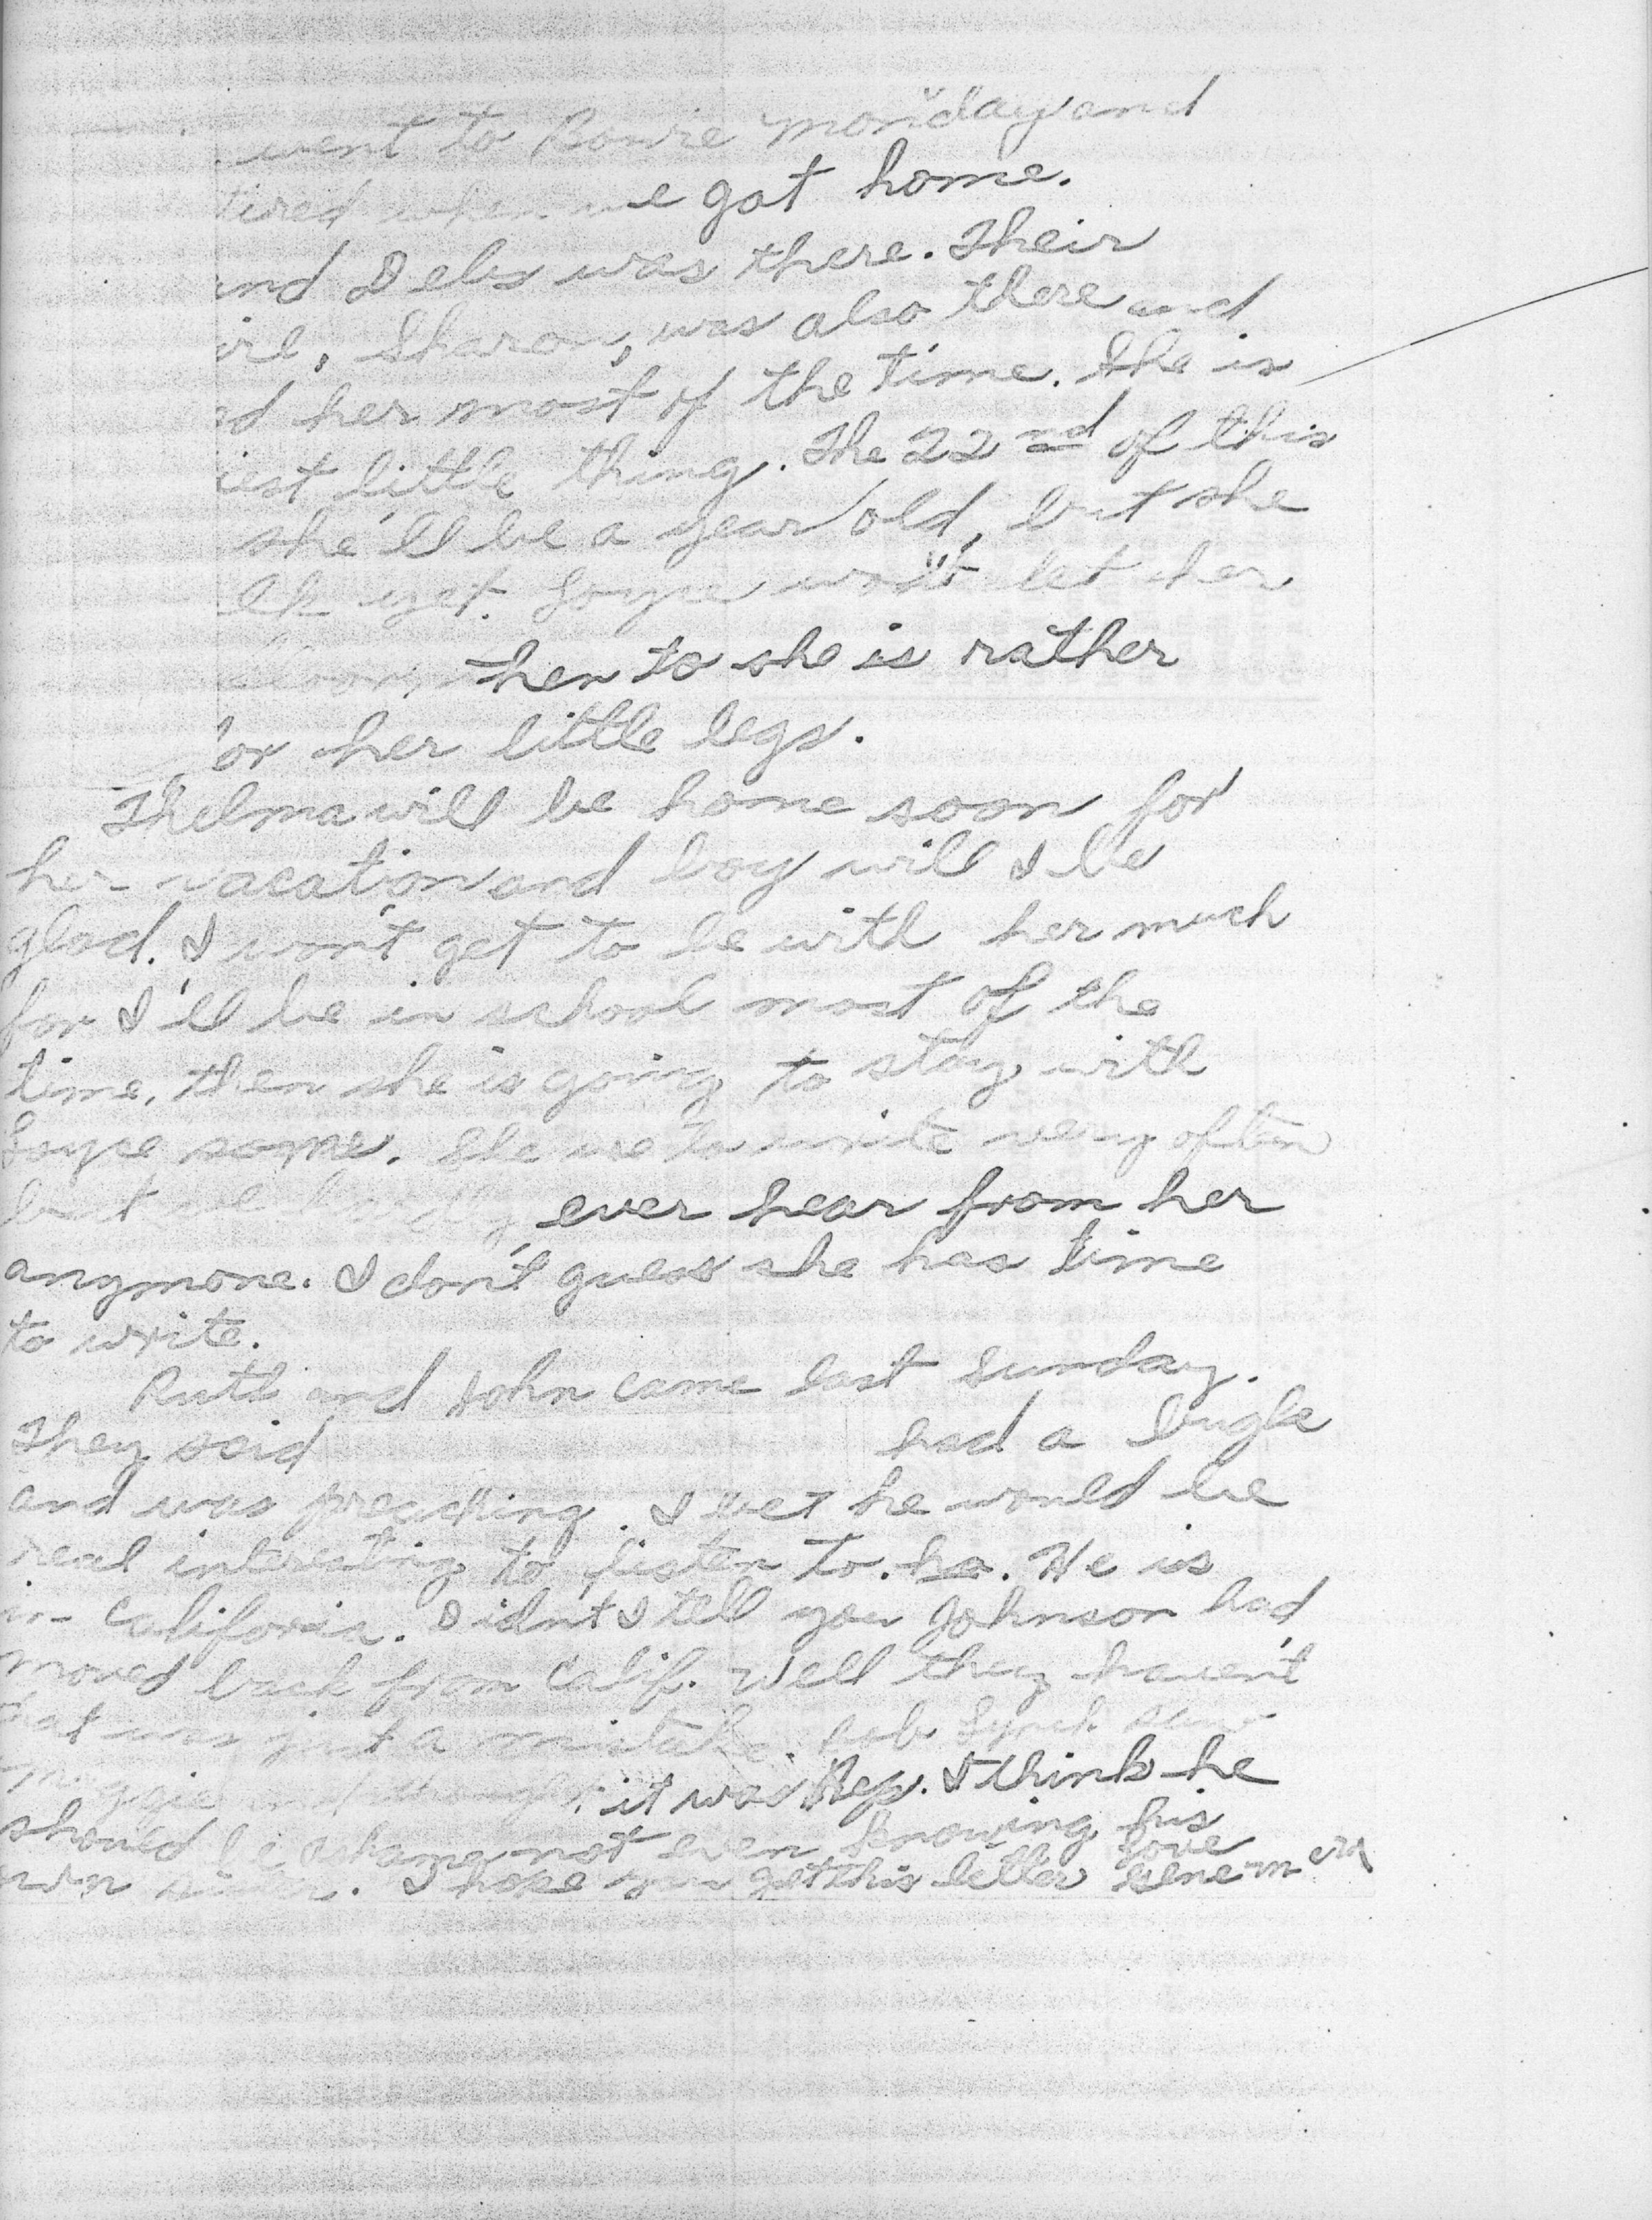 went to Bowie Monday and
tired when we got home.
and Delex was there. Their
Sharon, was also there and
her most of the time. She is
iest little thing. The 22nd of this
she'll be a year old, but she
yet. Joyce won't let her
then to she is rather
for her little legs.
Thelma will be home soon for
her vacation and boy will I be
glad. I won't get to be with her much
for I'll be in school most of the
time, then she is going to stay with
Joyce some. She use to write very often
but we hardly ever hear from her
anymore. I don't guess she has time
to write.
Ruth and John came last Sunday.
They said had a bugle
and was preaching. I bet he would be
real interesting to listen to. ha. He is
in California. Didn't I tell you Johnson had
moved back from Calif. Well they haven't
that was just a mistake. Bob Lynch saw
it was Hep. I think he
should be ashame not even knowing his
own . I hope you get this letter
Love